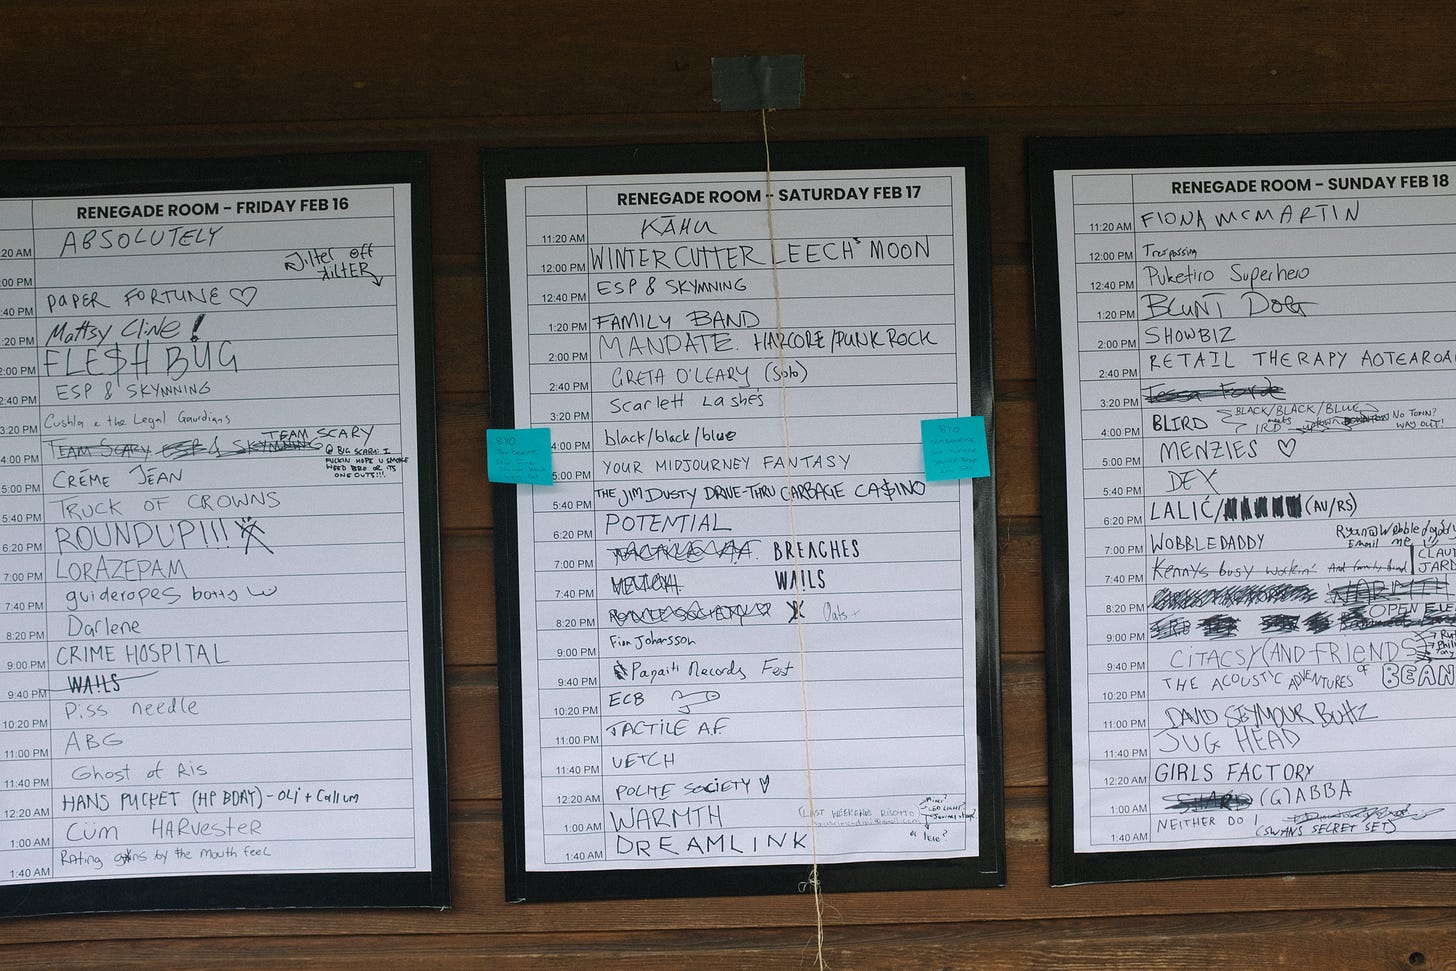 RENEGADE ROOM – FRIDAY FEB 16
:20 AM ABSOLUTELY
:00 PM Filter off FILTER
:40 PM PAPER FORTUNE ♡
:20 PM Mattsy Cline!
2:00 PM FLE$H BUG
2:40 PM ESP & SKYMNING
3:20 PM Cushla & the Legal Gaurdians
4:00 PM TEAM SCARY ESP & SKYMNING TEAM SCARY
@ BIG SCARY: I
FUCKIN HOPE U SMOKE
WEED BRO OR ITS
ONE OUTS!!!
5:00 PM CRÈME JEAN
5:40 PM TRUCK OF CROWNS
6:20 PM ROUNDUP!!!
7:00 PM LORAZEPAM
7:40 PM guideropes botts
8:20 PM Darlene
9:00 PM CRIME HOSPITAL
9:40 PM WAILS
10:20 PM Piss needle
11:00 PM ABG
11:40 PM Ghost of Ris
12:20 AM HANS PUCKET (HP BDAY) - OLI + Callum
1:00 AM Cüm HARvester
1:40 AM Rating by the mouth feel
RENEGADE ROOM – SATURDAY FEB 17
11:20 AM KĀHU
12:00 PM WINTER CUTTER LEECH'S MOON
12:40 PM ESP & SKYMNING
1:20 PM FAMILY BAND
2:00 PM MANDATE. HARCORE/PUNK ROCK
2:40 PM GRETA O'LEARY (Solo)
3:20 PM Scarlett Lashes
4:00 PM black/black/blue
5:00 PM YOUR MIDJOURNEY FANTASY
5:40 PM THE JIM DUSTY DRIVE-THRU GARBAGE CA$INO
6:20 PM POTENTIAL
7:00 PM BREACHES
7:40 PM WAILS
8:20 PM
9:00 PM Finn Johansson
9:40 PM Papaiti Records Fest
10:20 PM ECB
11:00 PM TACTILE A.F.
11:40 PM VETCH
12:20 AM POLITE SOCIETY ♡
1:00 AM WARMTH (LAST WEEKENDS RISOTTO)
1:40 AM DREAMLINK
BYO
BYO
RENEGADE ROOM – SUNDAY FEB 18
11:20 AM FIONA MCMARTIN
12:00 PM Trespassin
12:40 PM Puketiro Superhero
1:20 PM BLUNT DOG
2:00 PM SHOWBIZ
2:40 PM RETAIL THERAPY AOTEAROA
3:20 PM Tessa Forde
4:00 PM BLIRD BLACK/BLACK/BLUE meets IRD uptown DOWNTOWN NO TOWN?
WAY OUT!
5:00 PM MENZIES ♡
5:40 PM DEX
6:20 PM LALIĆ/ (AU/RS)
7:00 PM WOBBLEDADDY
Email me
7:40 PM Kennys busy workin' And family band
8:20 PM WARMTH
9:00 PM OPEN
9:40 PM CITACSY (AND FRIENDS)
10:20 PM THE ACOUSTIC ADVENTURES OF BEAN
11:00 PM DAVID SEYMOUR BUTTZ
11:40 PM JUG HEAD
12:20 AM GIRLS FACTORY
1:00 AM SHARD (G)ABBA
1:40 AM NEITHER DO I
(SWANS SECRET SET)